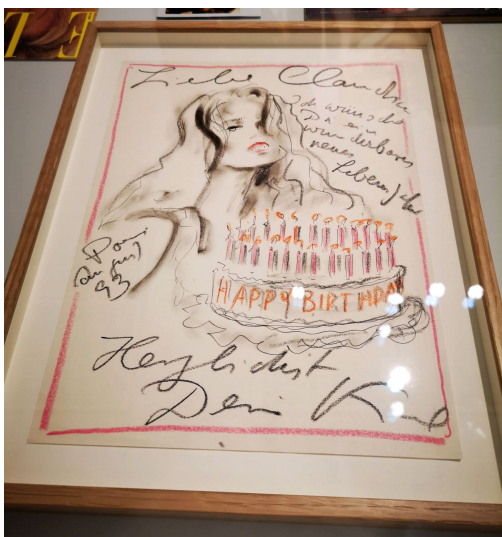 Liebe Claudia
Ich wünsche
Dir ein
wunderbares
neues
Lebensjahr
Paris
august
93
HAPPY BIRTHDAY
Herzlichst
Dein Karl